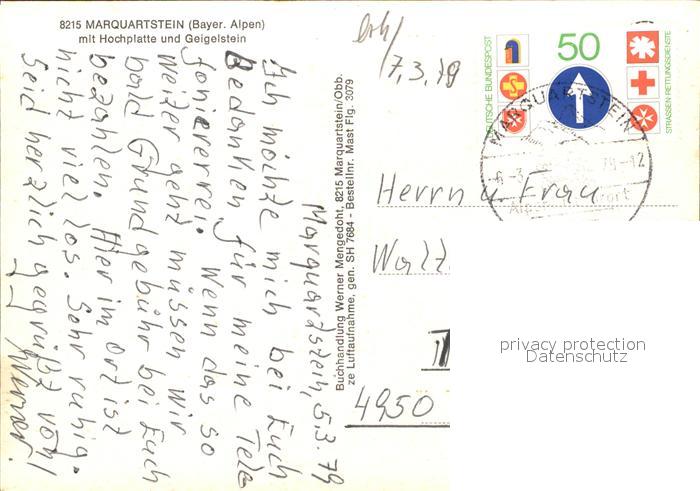 8215 MARQUARTSTEIN (Bayer. Alpen)
mit Hochplatte und Geigelstein
Marquardstein, 5.3.79
Ich möchte mich bei Euch
Bedanken für meine Tele
foniererrei. Wenn das so
weiter geht müssen wir
bald Grundgebühr bei Euch
bezahlen. Hier im Ort ist
nicht viel los. Sehr ruhig.
Seid herzlich gegrüßt von
Werner.
Buchhandlung Werner Mengedoht, 8215 Marquartstein/Obb.
ze Luftaufnahme, gen. SH 7684 - Bestellnr. Mast Flg. 3079
erh/
7.3.79
DEUTSCHE BUNDESPOST
50
STRASSEN-RETTUNGSDIENSTE
MARQUARTSTEIN
6-3 79-12
Herrn u. Frau
4950
privacy protection
Datenschutz